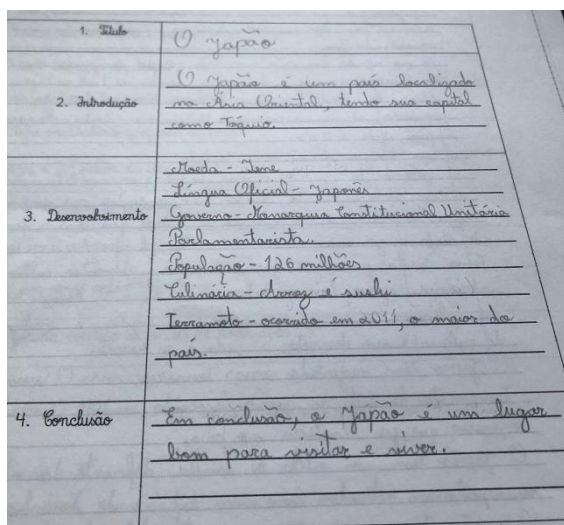 1. Título
O Japão
2. Introdução
O Japão é um país localizado
na Ásia Oriental, tendo sua capital
como Tóquio.
3. Desenvolvimento
Moeda - Iene
Língua Oficial - Japonês
Governo - Monarquia Constitucional Unitária
Parlamentarista.
População - 126 milhões
Culinária - Arroz e sushi
Terramoto - ocorrido em 2011, o maior do
país.
4. Conclusão
Em conclusão, o Japão é um lugar
bom para visitar e viver.